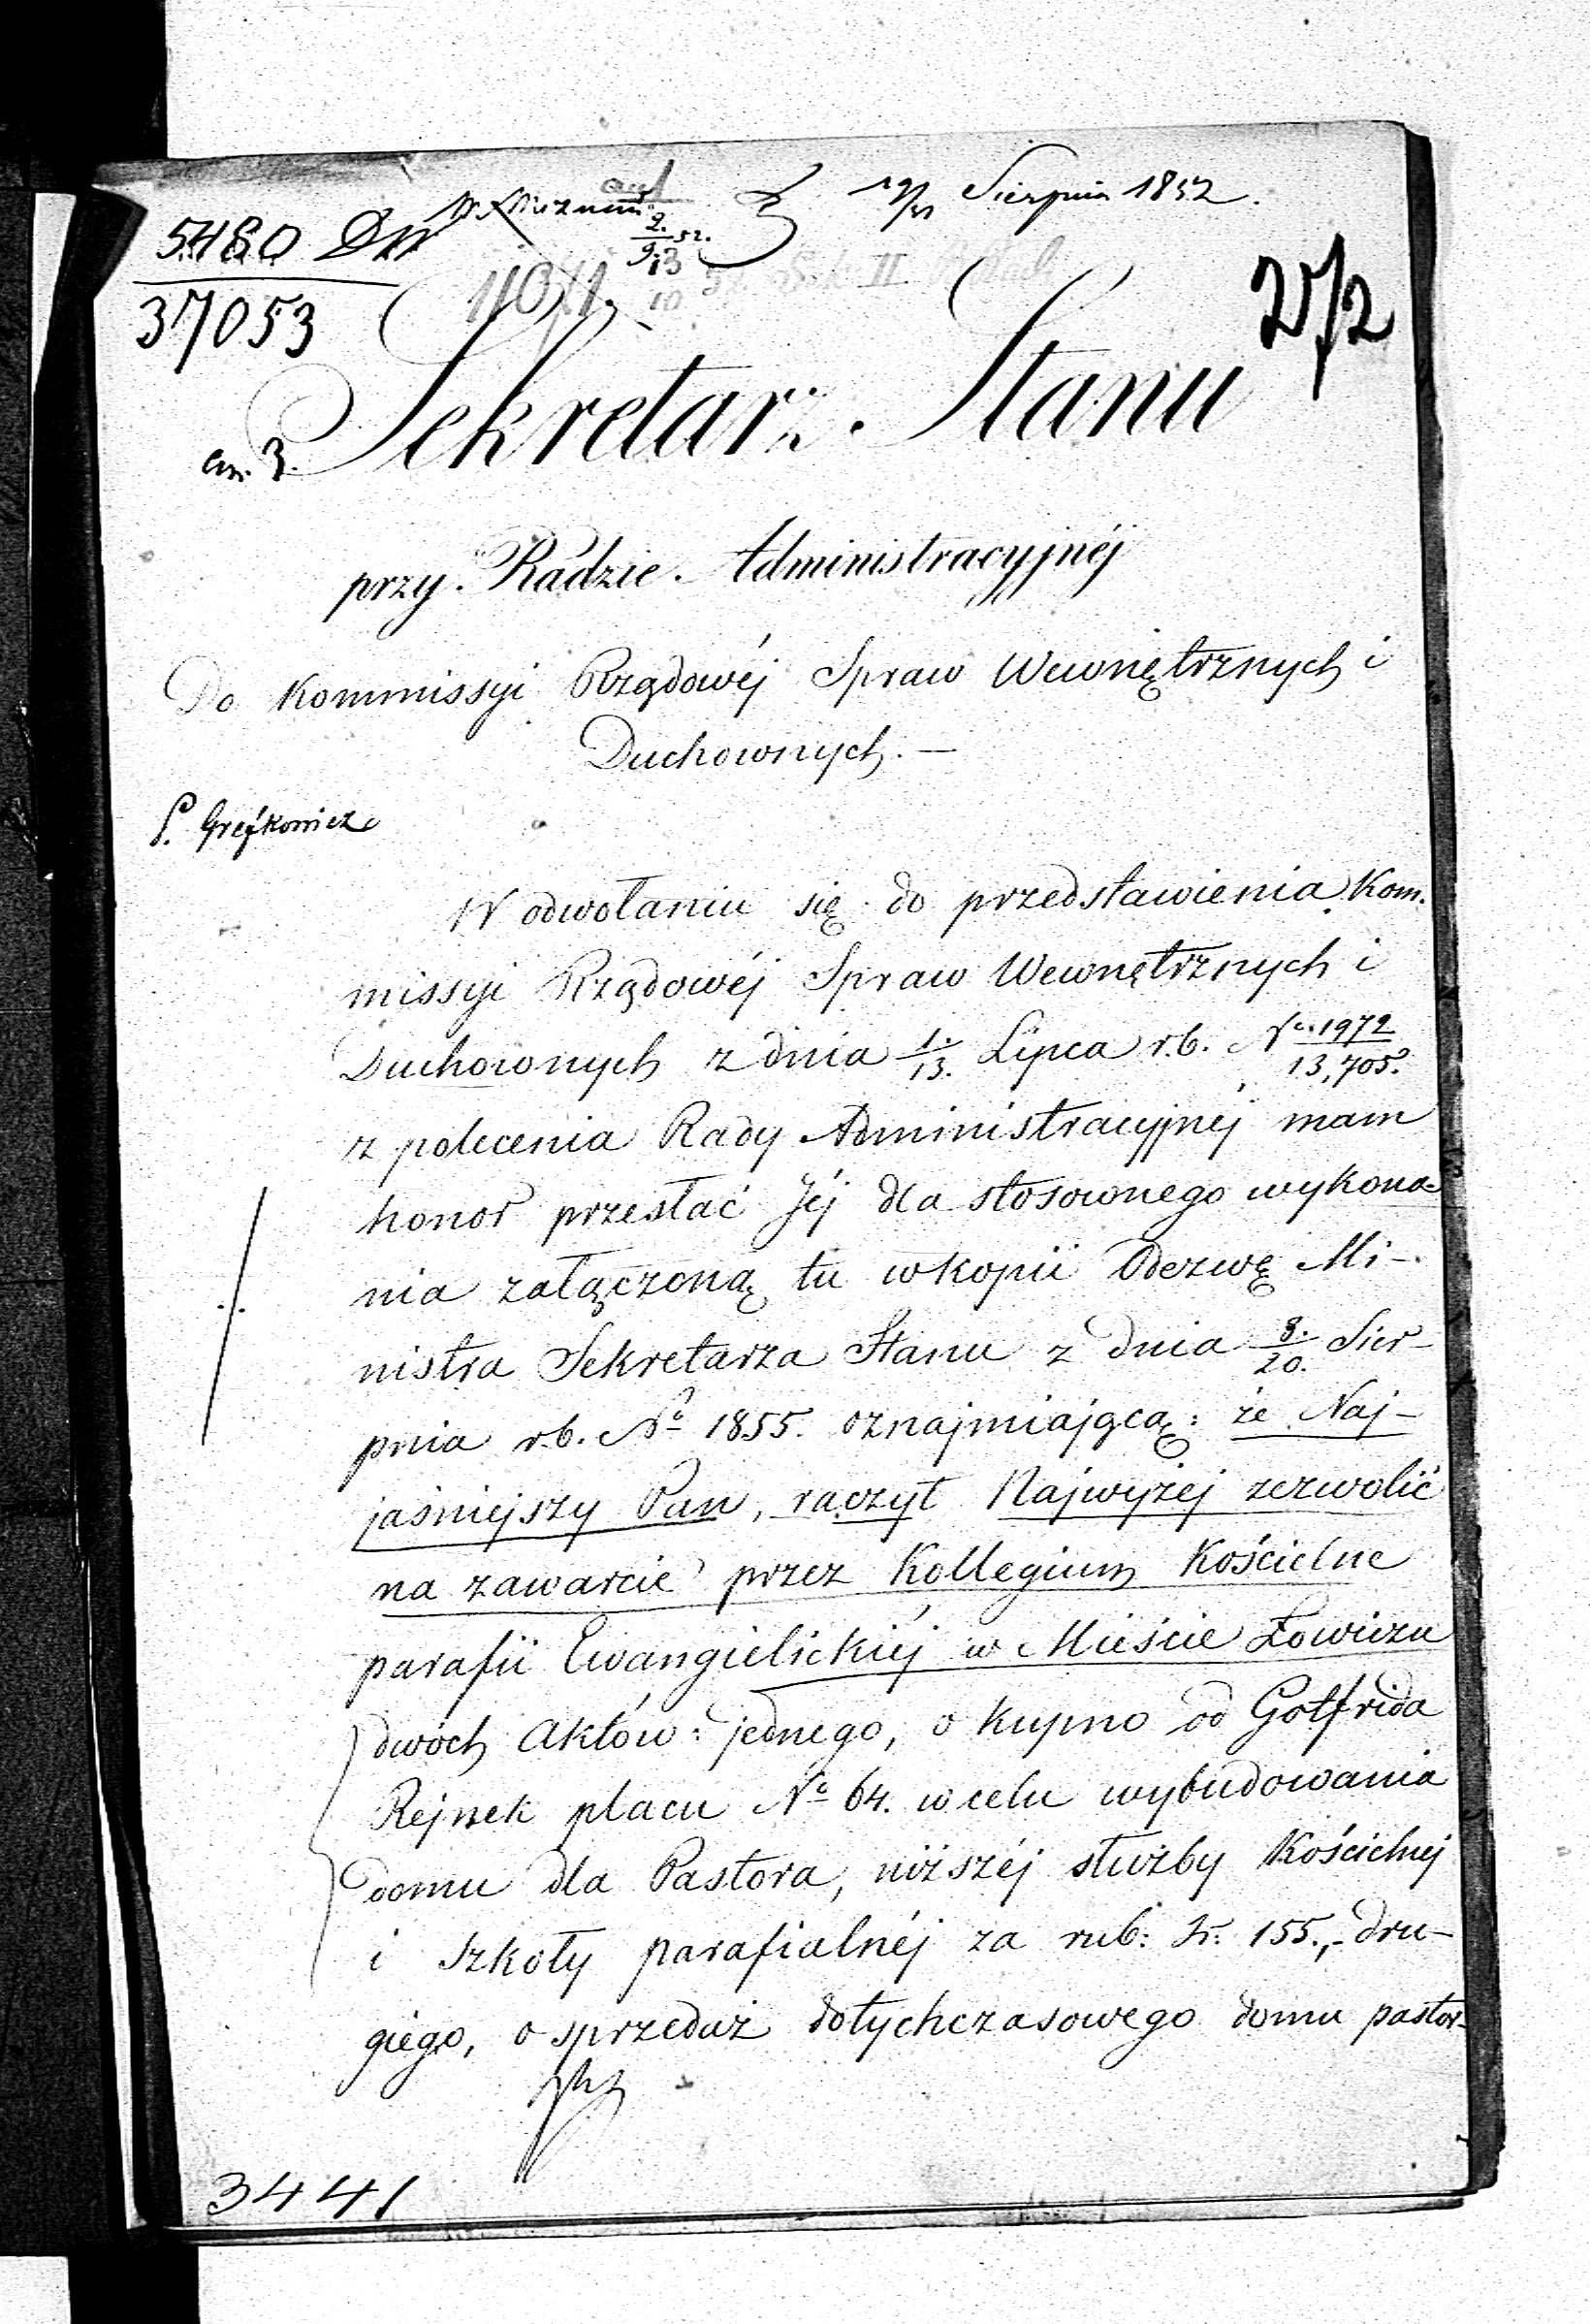 19/31 Sierpnia 1852.
5480 DW
37053
11041.
272
Sekretarz Stanu
przy Radzie Administracyjnéj
Do Kommissyi Rządowéj Spraw Wewnętrznych i
Duchownych. —
P.
W odwołaniu się do przedstawienia Kom-
missyi Rządowéj Spraw Wewnętrznych i
Duchownych z dnia 1/13. Lipca r.b. No. 1972/13,705.
z polecenia Rady Administracyjnéj mam
honor przesłać Jéj dla stosownego wykona=
nia załączoną tu w kopii Odezwę Mi-
nistra Sekretarza Stanu z dnia 8./20. Sier-
pnia r.b. No 1855. oznajmiającą: że Naj-
jaśniejszy Pan, raczył Najwyżej zezwolić
na zawarcie przez Kollegium Kościelne
parafii Ewangielickiéj w Mieście Łowiczu
dwóch Aktów: jednego, o kupno od Gotfrida
Rejnek placu No 64. w celu wybudowania
domu dla Pastora, niższéj służby Kościelnej
i Szkoły parafialnéj za rub: sr. 155., dru-
giego, o sprzedaż dotychczasowego domu pastor-
3441